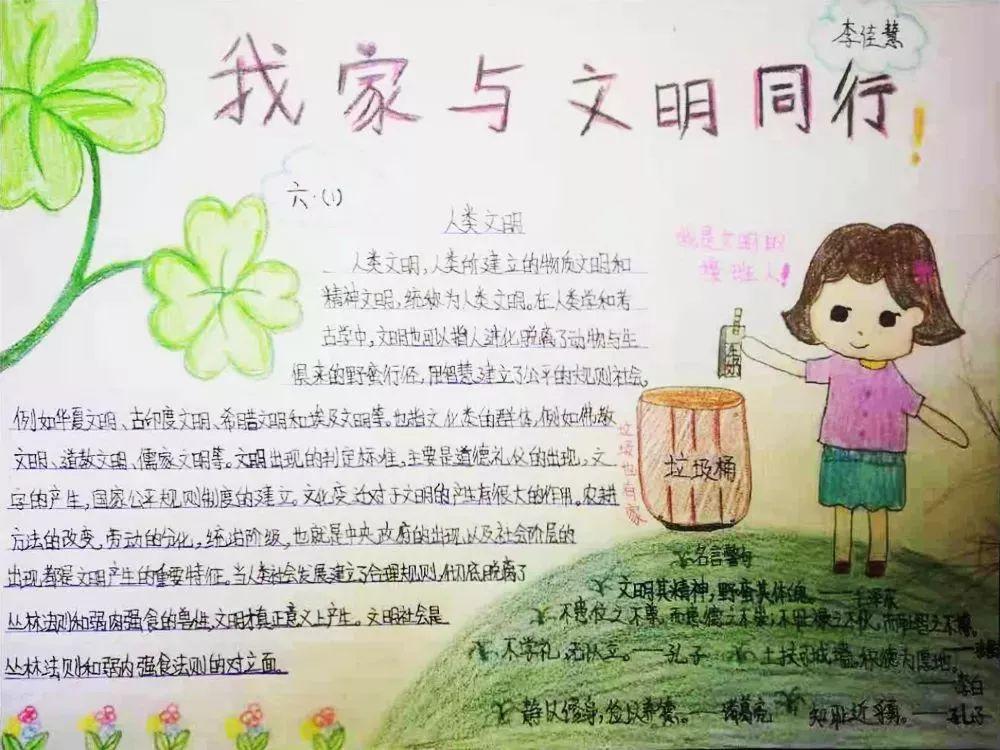 李佳慧
我家与文明同行!
六.(1)
人类文明
人类文明,人类所建立的物质文明和
精神文明,统称为人类文明。在人类学和考
古学中,文明也可以指人进化脱离了动物与生
俱来的野蛮行径,用智慧建立了公平的规则社会。
例如华夏文明、古印度文明、希腊文明和埃及文明等。也指文化类的群体,例如佛教
文明、道教文明、儒家文明等。文明出现的判定标准,主要是道德礼仪的出现,文
字的产生,国家公平规则制度的建立。文化变迁对于文明的产生有很大的作用。农耕
方法的改变,劳动的分化,统治阶级,也就是中央政府的出现以及社会阶层的
出现,都是文明产生的重要特征。当人类社会发展建立了合理规则,彻底脱离了
丛林法则和弱肉强食的兽性,文明才真正意义上产生。文明社会是
丛林法则和弱肉强食法则的对立面。
我是文明的
接班人!
垃圾也有家
垃圾桶
名言警句
文明其精神,野蛮其体魄——毛泽东
不患位之不尊,而患德之不崇;不耻禄之不伙,而耻智之不博。
不学礼,无以立。——孔子
土扶可成墙,积德为厚地。
——李白
静以修身,俭以养德。——诸葛亮
知耻近乎勇。——孔子